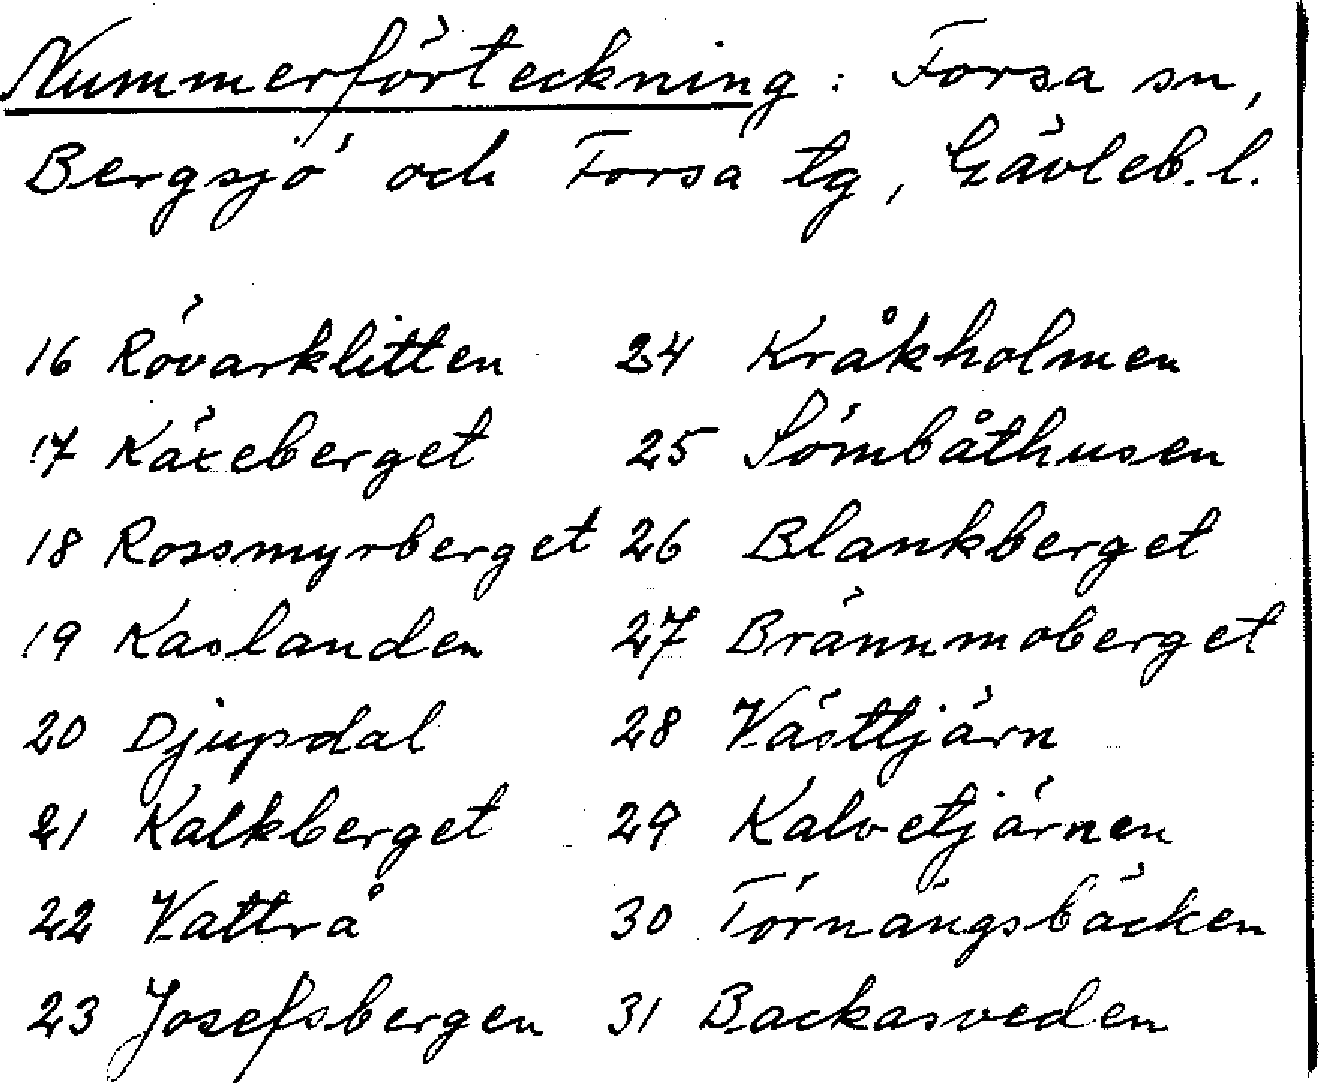 Nummerförteckning: Forsa sn,
Bergsjö och Forsa tg, Gävleb.l.
16 Rövarklitten 24 Kråkholmen
17 Käxeberget 25 Sömbåthusen
18 Rossmyrberget 26 Blankberget
19 Kaslanden 27 Brännmoberget
20 Djupdal 28 Västtjärn
21 Kalkberget 29 Kalvetjärnen
22 Vattrå 30 Törnängsbäcken
23 Josefsbergen 31 Backasveden